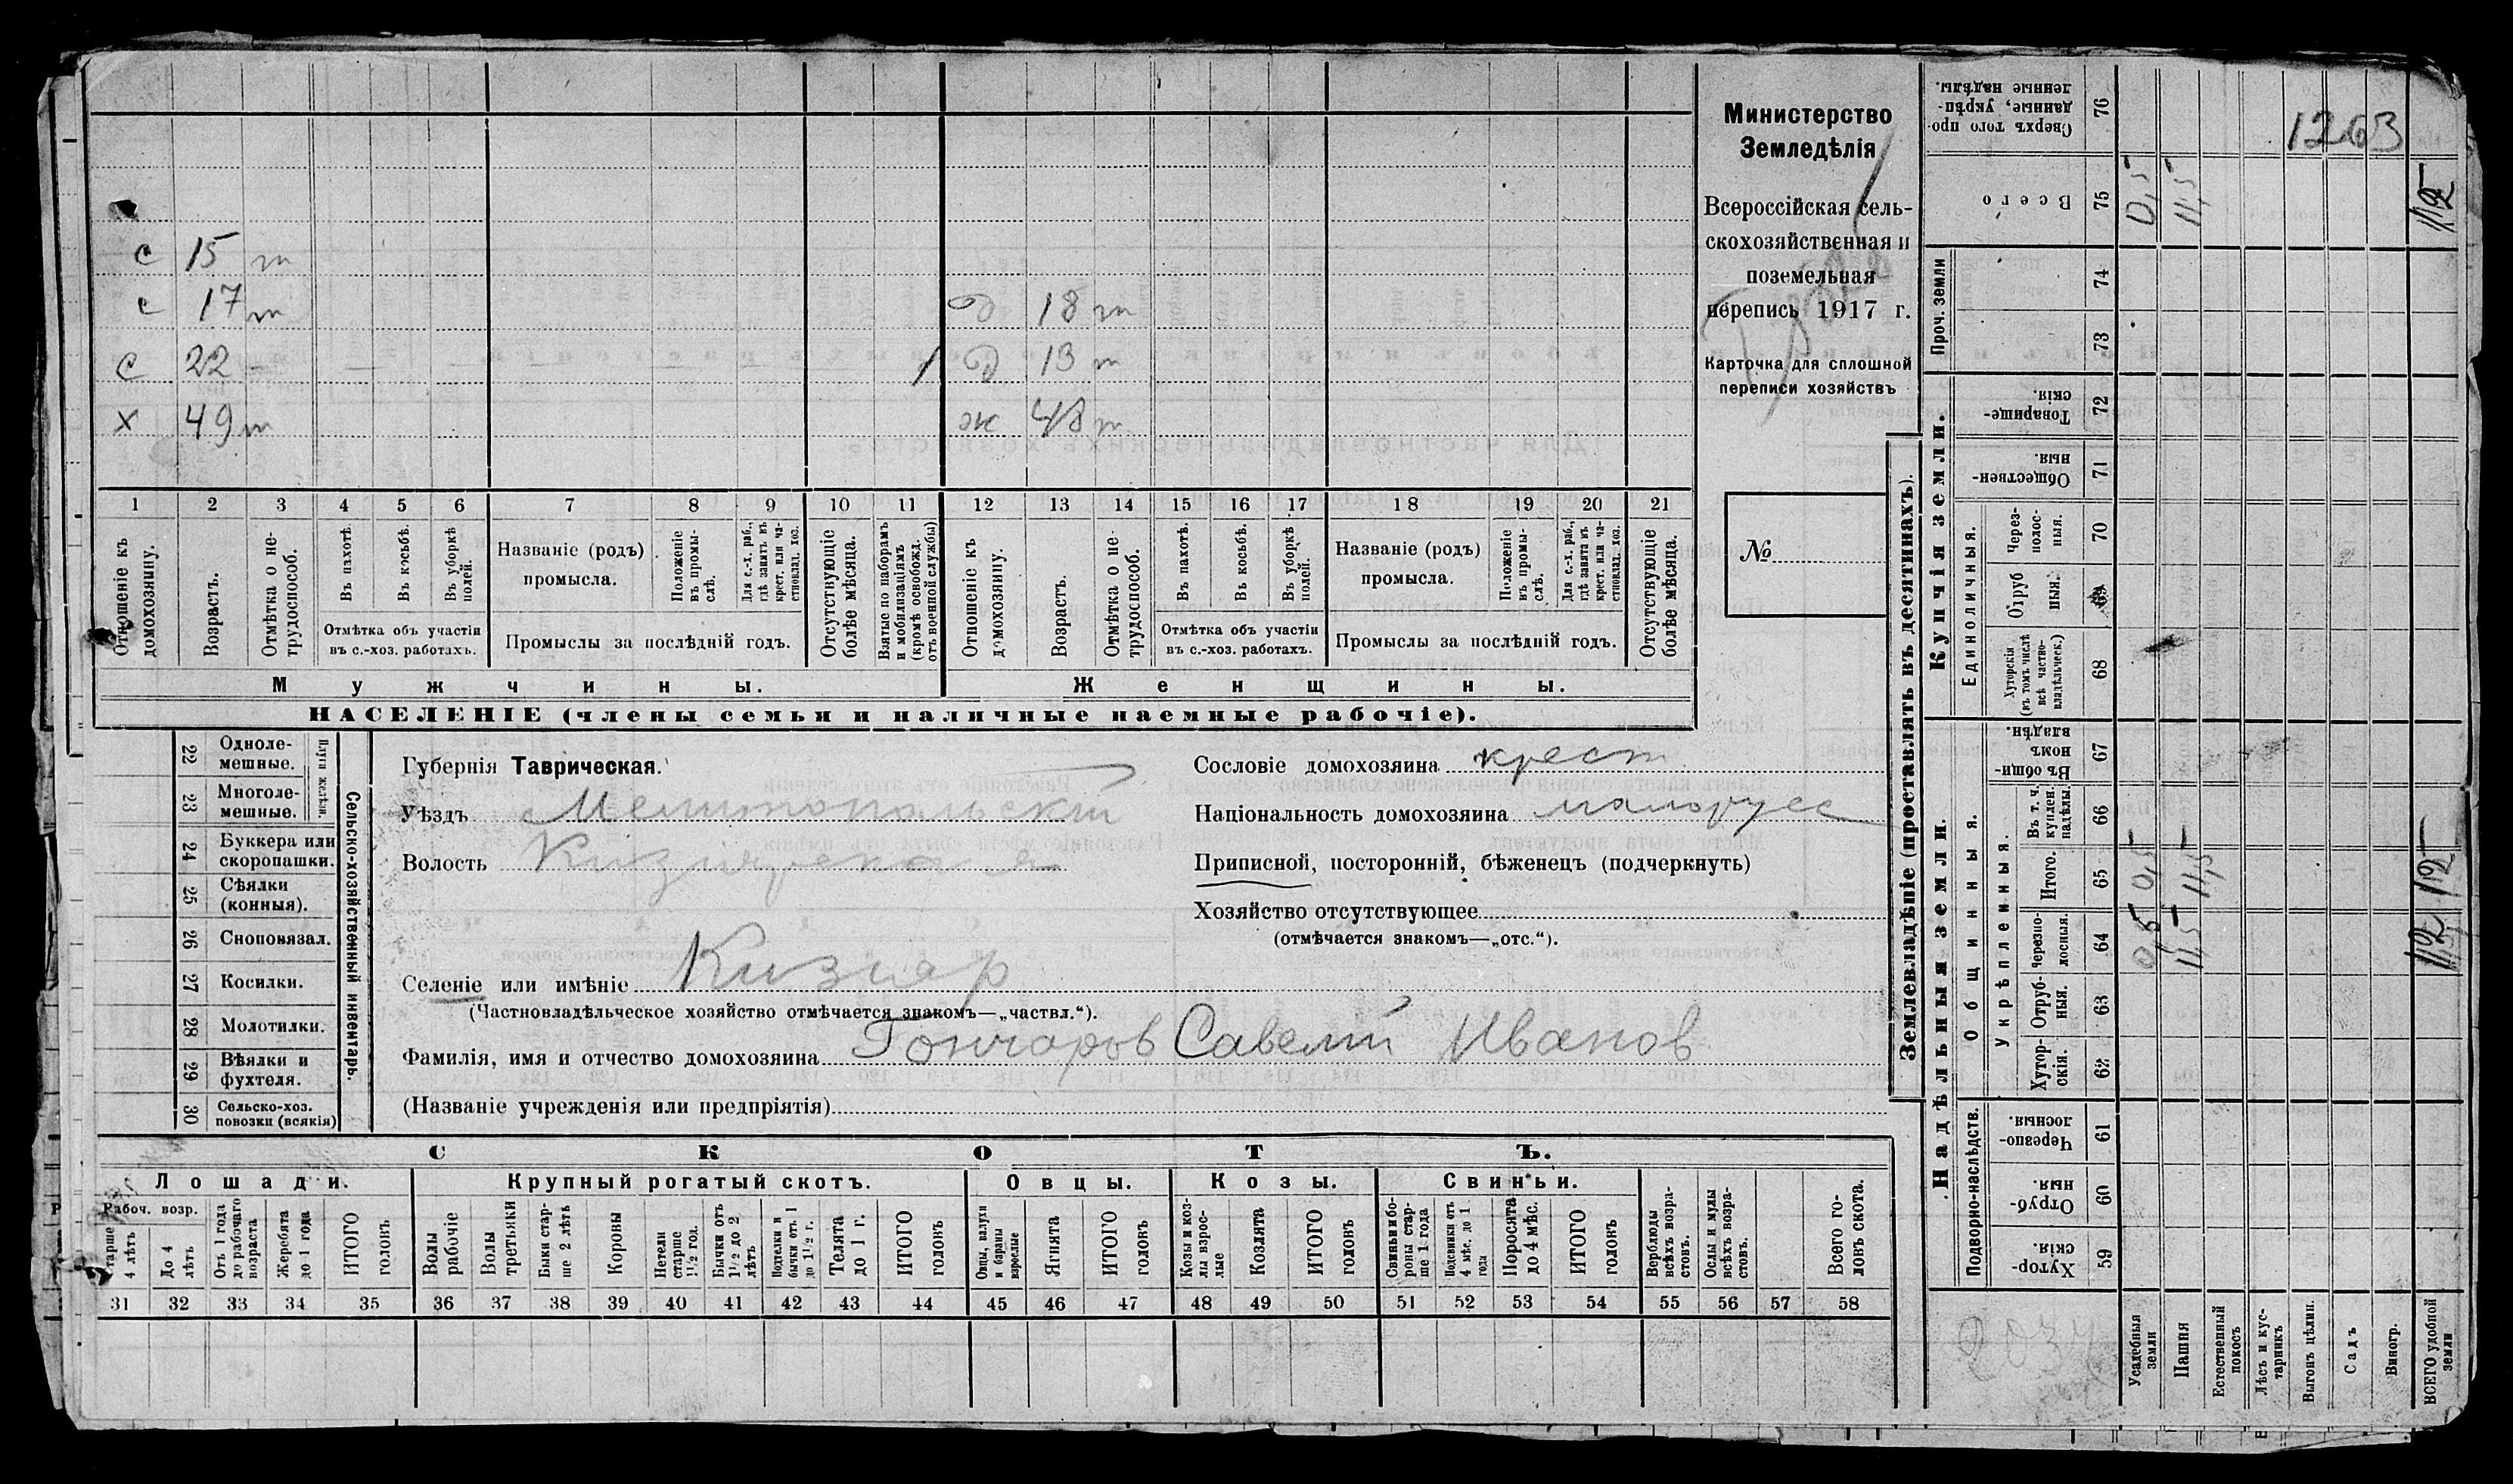 с 15 т
с 17 т д 18 т
с 22 — 1 д 13 т
х 49 т ж 48 т
1 2 3 4 5 6 7 8 9 10 11 12 13 14 15 16 17 18 19 20 21
Отношеніе къ домохозяину.
Возрастъ.
Отмѣтка о не-трудоспособ.
Въ пахотѣ.
Въ косьбѣ.
Въ уборкѣ полей.
Отмѣтка объ участіи
въ с.-хоз. работахъ.
Названіе (родъ)
промысла.
Положеніе въ промы-слѣ.
Для с.-х. раб., гдѣ занятъ въ крест. или ча-стновлад. хоз.
Промыслы за послѣдній годъ.
Отсутствующіе болѣе мѣсяца.
Взятые по наборамъ и мобилизаціямъ (кромѣ освобожд. отъ военной службы)
Отношеніе къ домохозяину.
Возрастъ.
Отмѣтка о не-трудоспособ.
Въ пахотѣ.
Въ косьбѣ.
Въ уборкѣ полей.
Отмѣтка объ участіи
въ с.-хоз. работахъ.
Названіе (родъ)
промысла.
Положеніе въ промы-слѣ.
Для с.-х. раб., гдѣ занята въ крест. или ча-стновлад. хоз.
Промыслы за послѣдній годъ.
Отсутствующіе болѣе мѣсяца.
Мужчины.
Женщины.
НАСЕЛЕНІЕ (члены семьи и наличные наемные рабочіе).
Министерство
Земледѣлія
Всероссійская сель-
скохозяйственная и
поземельная
перепись 1917 г.
Карточка для сплошной
переписи хозяйствъ
№
Сельско-хозяйственный инвентарь.
Плуги желѣзн.
22 Одноле-
мешные.
23 Многоле-
мешные.
24 Буккера или
скоропашки.
25 Сѣялки
(конныя).
26 Сноповязал.
27 Косилки.
28 Молотилки.
29 Вѣялки и
фухтеля.
30 Сельско-хоз.
повозки (всякія)
Губернія Таврическая.
Уѣздъ Мелитопольскій
Волость Кизиярская
Селеніе или имѣніе Кизияр
(Частновладѣльческое хозяйство отмѣчается знакомъ—„частвл.“).
Фамилія, имя и отчество домохозяина Гончаров Савелій Иванов
(Названіе учрежденія или предпріятія)
Сословіе домохозяина крест
Національность домохозяина малорусс
Приписной, посторонній, бѣженецъ (подчеркнуть)
Хозяйство отсутствующее
(отмѣчается знакомъ—„отс.“).
СКОТЪ.
Лошади.
Крупный рогатый скотъ.
Овцы.
Козы.
Свиньи.
Рабоч. возр.
Старше 4 лѣтъ
До 4 лѣтъ
Отъ 1 года до рабочаго возраста
Жеребята до 1 года
ИТОГО головъ
Волы рабочіе
Волы третьяки
Быки стар-ше 2 лѣтъ
Коровы
Нетели старше 1½ год.
Бычки отъ 1½ до 2 лѣтъ
Подтелки и бычки отъ 1 до 1½ г.
Телята до 1 г.
ИТОГО головъ
Овцы, валухи и бараны взрослые
Ягнята
ИТОГО головъ
Козы и коз-лы взрос-лые
Козлята
ИТОГО головъ
Свиньи и бо-ровы стар-ше 1 года
Подсвинки отъ 4 мѣс. до 1 года
Поросята до 4 мѣс.
ИТОГО головъ
Верблюды всѣхъ возра-стовъ.
Ослы и мулы всѣхъ возра-стовъ.
Всего го-ловъ скота.
31 32 33 34 35 36 37 38 39 40 41 42 43 44 45 46 47 48 49 50 51 52 53 54 55 56 57 58
Землевладѣніе (проставлять въ десятинахъ).
Надѣльныя земли.
Купчія земли.
Проч. земли
Подворно-наслѣдств.
Общинныя.
Укрѣпленныя.
Единоличныя.
Сверхъ того про-данные, укрѣп-ленные надѣлы. 76
Всего 75 0,5 11,5 12
74
73
Товарище-скія. 72
Обществен-ныя. 71
Через-полос-ныя. 70
Отруб-ныя. 69
Хуторскія (въ томъ числѣ всѣ частно-владѣльческ.) 68
Въ общи-номъ владѣн. 67
Въ т. ч. куплен. надѣлы. 66
Итого. 65 0,5 11,5 12
Черезпо-лосныя. 64 0,5 11,5 12
Отруб-ныя. 63
Хутор-скія. 62
Черезпо-лосныя. 61
Отруб-ныя. 60
Хутор-скія. 59
Усадебныя земли
Пашня
Естественный покосъ
Лѣсъ и кус-тарникъ
Выгонъ цѣлин.
Садъ
Виногр.
ВСЕГО удобной земли
1263
2034